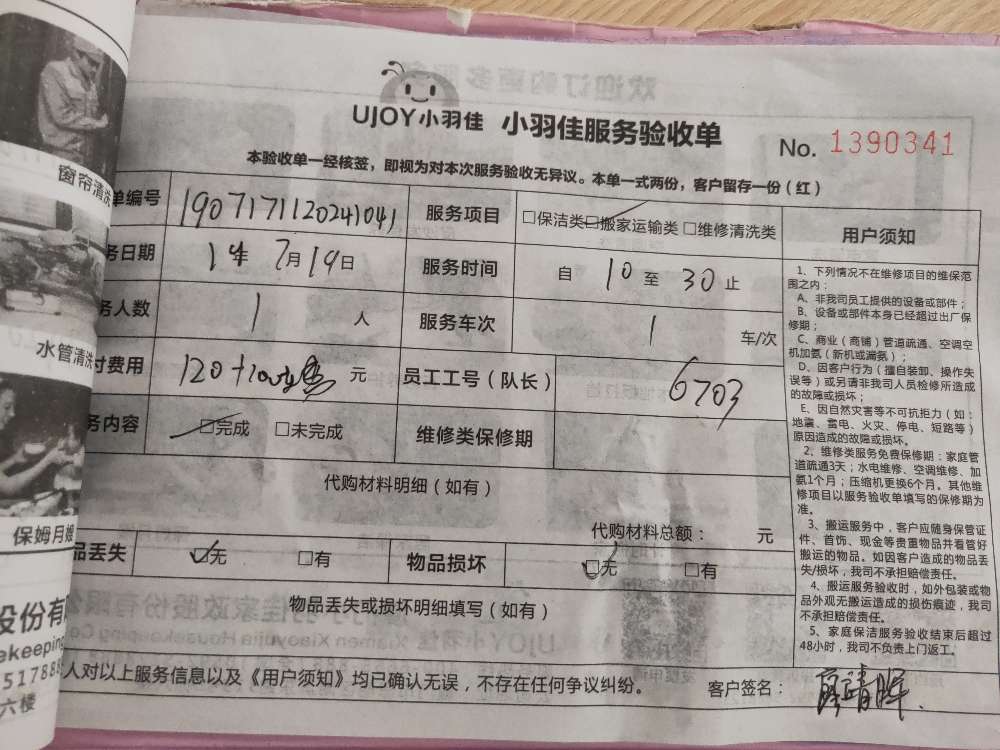 窗帘清洗
水管清洗
保姆月嫂
股份有限
ekeeping
517888
六楼
UJOY小羽佳 小羽佳服务验收单
No. 1390341
本验收单一经核签，即视为对本次服务验收无异议。本单一式两份，客户留存一份（红）
单编号 1907171120241041 服务项目 □保洁类 □搬家运输类 □维修清洗类 用户须知
务日期 1年 7月19日 服务时间 自 10 至 30 止
务人数 1 人 服务车次 1 车/次
付费用 120+100 元 员工工号（队长） 6703
务内容 □完成 □未完成 维修类保修期
代购材料明细（如有）
代购材料总额： 元
品丢失 □无 □有 物品损坏 □无 □有
物品丢失或损坏明细填写（如有）
人对以上服务信息以及《用户须知》均已确认无误，不存在任何争议纠纷。 客户签名： 廖靖晖
1、下列情况不在维修项目的维保范
围之内：
A、非我司员工提供的设备或部件；
B、设备或部件本身已经超过出厂保
修期；
C、商业（商铺）管道疏通、空调空
机加氨（新机或漏氨）；
D、因客户行为（擅自装卸、操作失
误等）或另请非我司人员检修所造成
的故障或损坏；
E、因自然灾害等不可抗拒力（如：
地震、雷电、火灾、停电、短路等）
原因造成的故障或损坏。
2、维修类服务免费保修期：家庭管
道疏通3天；水电维修、空调维修、加
氨1个月；压缩机更换6个月。其他维
修项目以服务验收单填写的保修期为
准。
3、搬运服务中，客户应随身保管证
件、首饰、现金等贵重物品并看管好
搬运的物品。如因客户造成的物品丢
失/损坏，我司不承担赔偿责任。
4、搬运服务验收时，如外包装或物
品外观无搬运造成的损伤痕迹，我司
不承担赔偿责任。
5、家庭保洁服务验收结束后超过
48小时，我司不负责上门返工。